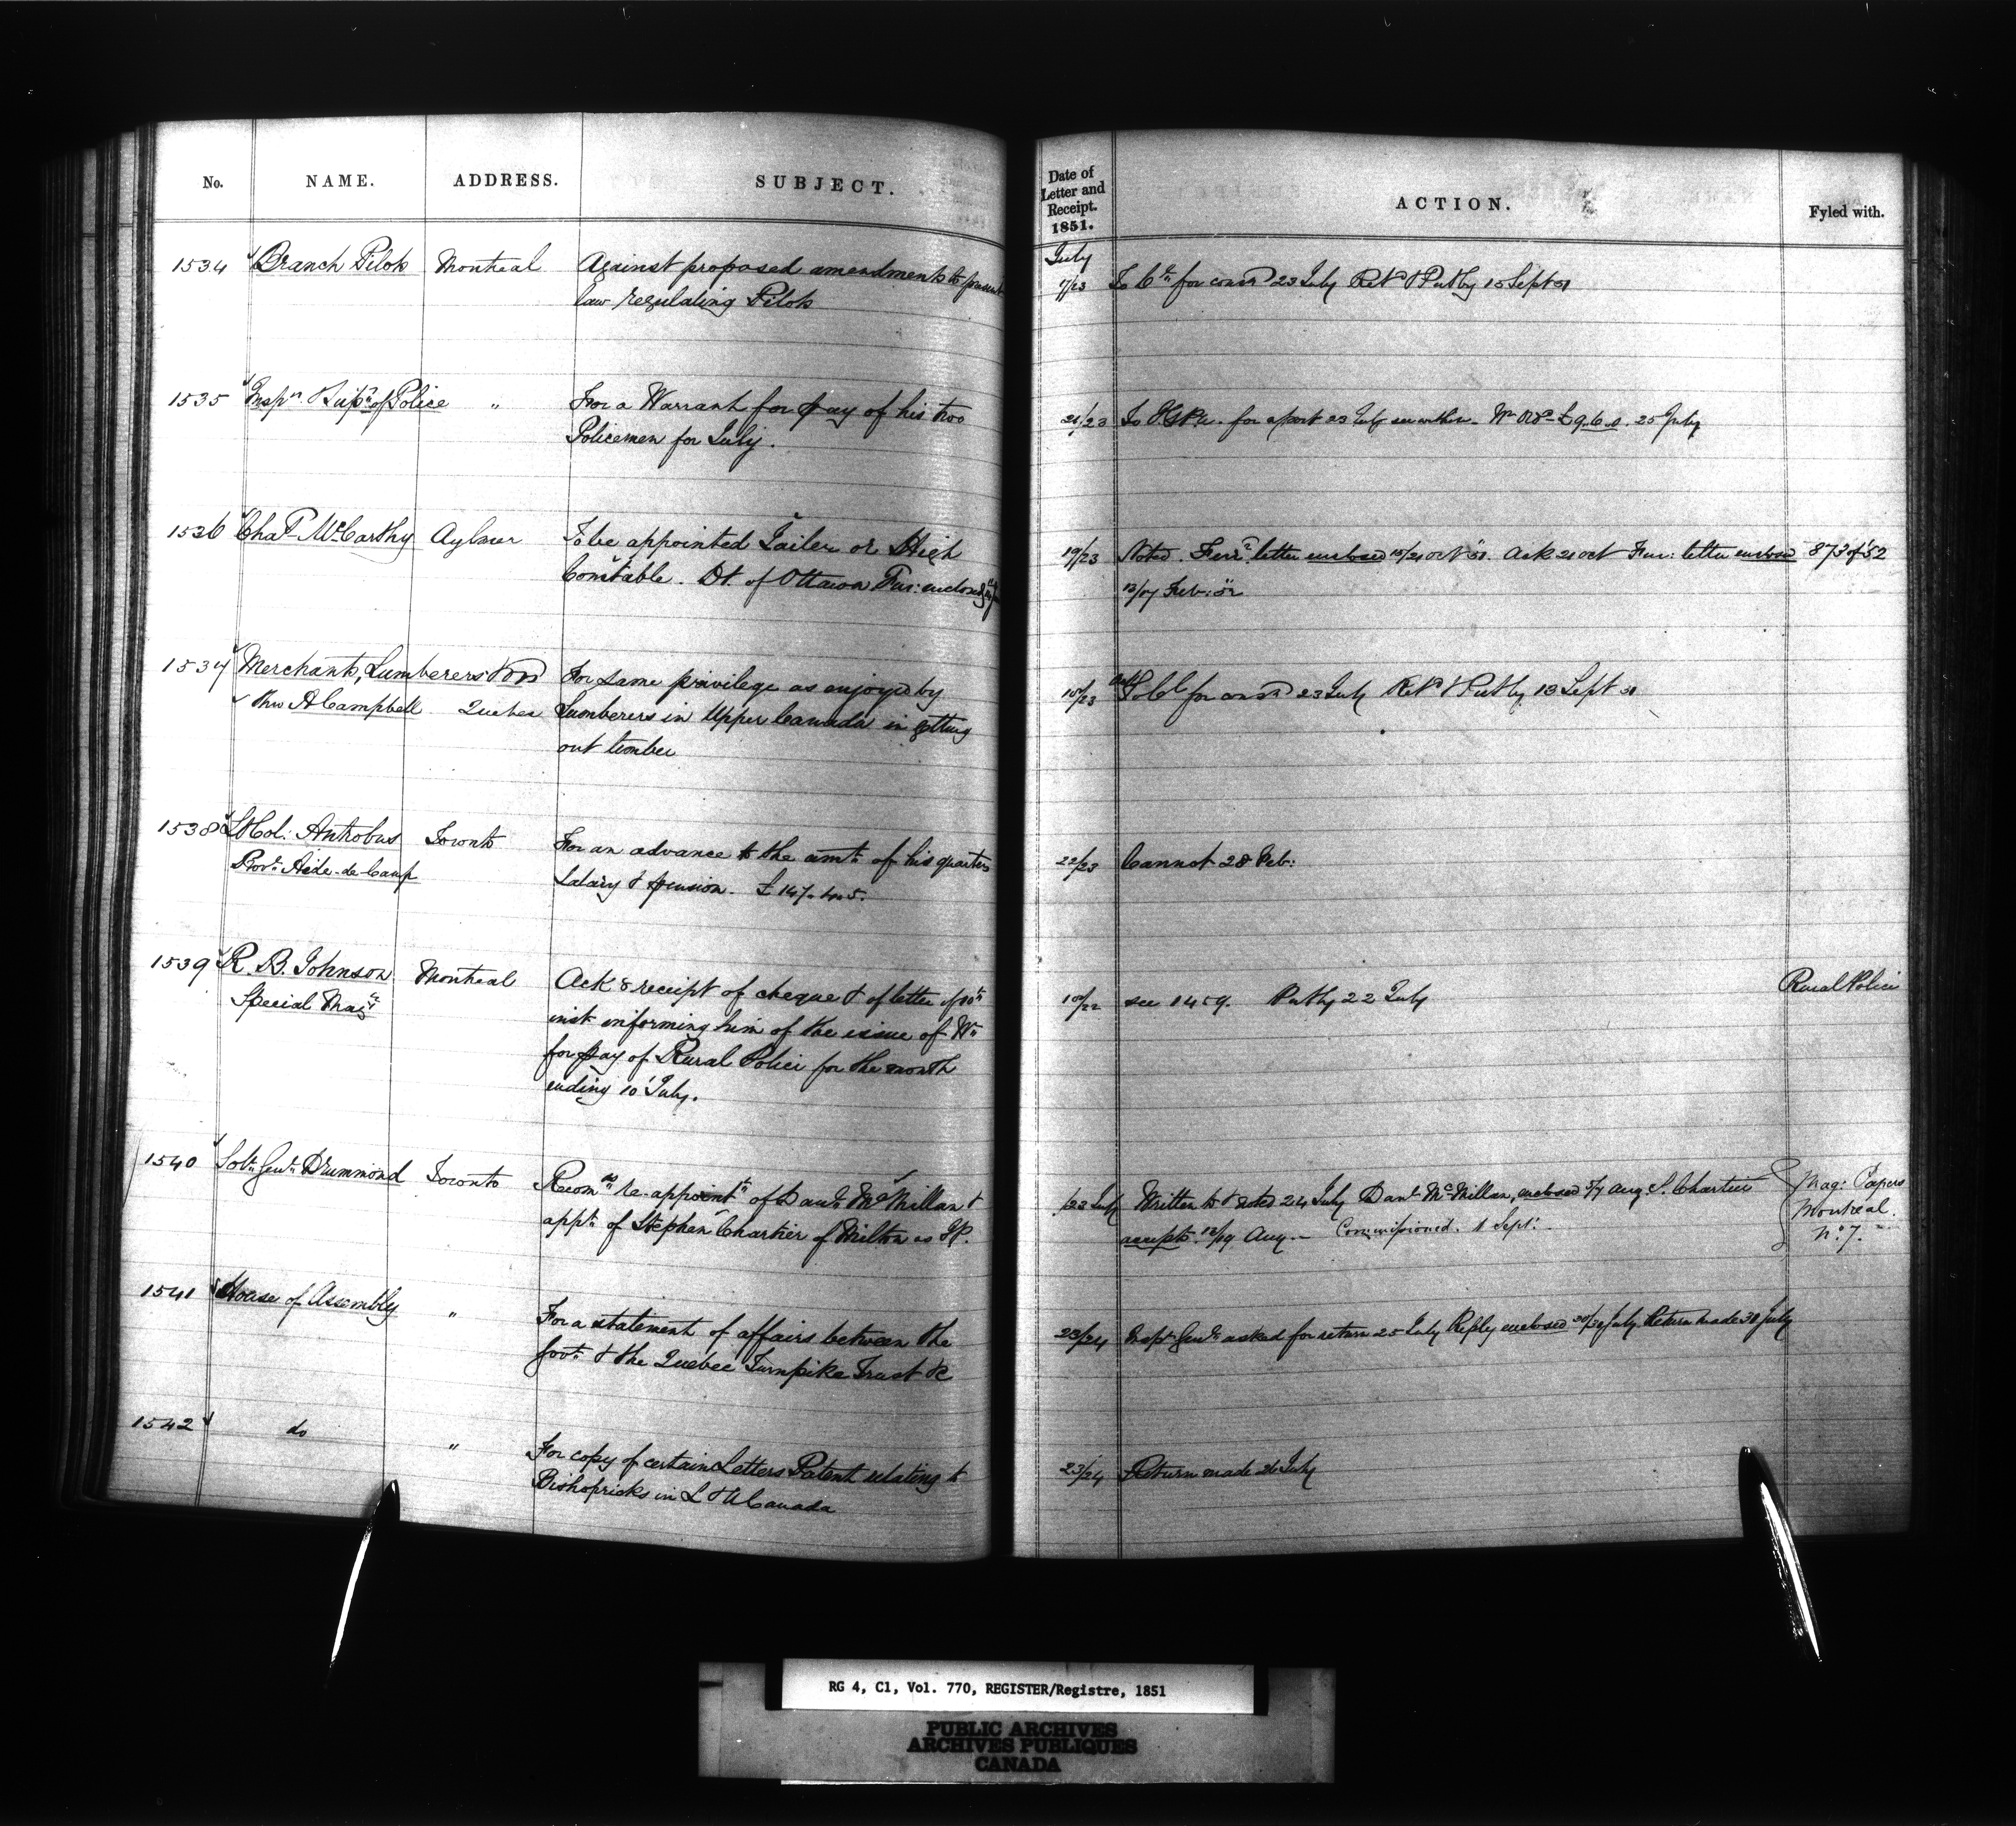 No. NAME. ADDRESS. SUBJECT.
1534 Branch Pilots Montreal Against proposed amendments to present
law regulating Pilots
1535 Insp^r & Sup^t of Police " For a Warrant for pay of his two
Policemen for July.
1536 Cha^s McCarthy Aylmer To be appointed Gailer or High
Constable. Dt. of Ottawa Fur: enclos^g
1537 Merchants, Lumberers & For same privilege as enjoyed by
thro A Campbell Quebec Lumberers in Upper Canada in getting
out timber
1538 Lt Col: Antrobus Toronto For an advance to the amt of his quarters
Prov^l Aide-de-Camp Salary & pension. £147.4.5.
1539 R. B. Johnson Montreal Ack^g receipt of cheque & of letter of 10th
Special Mag^te inst informing him of the issue of W^t
for pay of Rural Police for the month
ending 10 July.
1540 Sol^r Gen^l Drummond Toronto Recom^ds re-appoint^t of Dan^l McMillan &
app^t of Stephen Chartier of Milton as JP.
1541 House of Assembly " For a statement of affairs between the
Gov^t & the Quebec Turnpike Trust &c
1542 do " For copy of certain Letters Patent relating to
Bishopricks in L & U Canada
Date of
Letter and
Receipt.
1851. ACTION. Fyled with.
July
7/23 for 23 July Ret^d & Put by 15 Sept 51
21/23 To for 23 July 25 July
19/23 Noted. Fur^r letter enclosed 15/21 Oct 51. Ack 21 Oct Fur: letter enclosed 873 of '52
13/17 Feb: 52
15/23 for 23 July Ret^d & Put by 13 Sept 51
22/23 Cannot 28 Feb:
18/22 see 1459. Put by 22 July Rural Police
/23 July Written to & noted 24 July Dan^l McMillan, enclosed 5/7 Aug S. Chartier Mag: Papers
accepts 12/19 Aug. Commissioned. 1 Sept: Montreal.
No. 7.
23/24 Insp^r Gen^l asked for return 25 July Reply enclosed 30/30 July. Return made 30 July
23/24 Return made 26 July
RG 4, C1, Vol. 770, REGISTER/Registre, 1851
PUBLIC ARCHIVES
ARCHIVES PUBLIQUES
CANADA